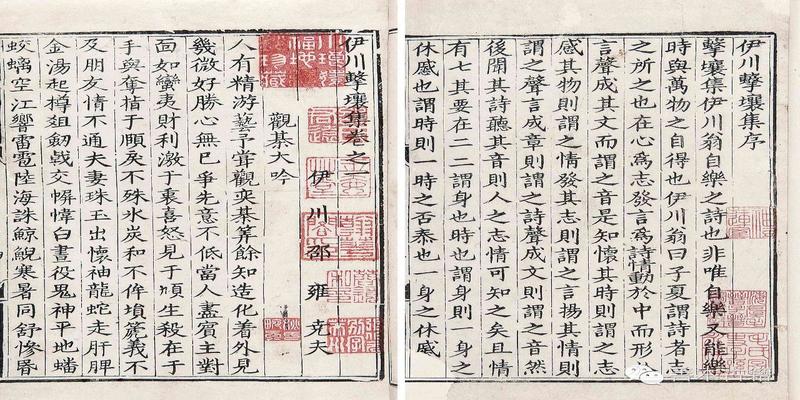 伊川擊壤集序
擊壤集伊川翁自樂之詩也非唯自樂又能樂
時與萬物之自得也伊川翁曰子夏謂詩者志
之所之也在心為志發言為詩情動於中而形於
言聲成其文而謂之音是知懷其時則謂之志
感其物則謂之情發其志則謂之言揚其情則
謂之聲言成章則謂之詩聲成文則謂之音然
後聞其詩聽其音則人之志情可知之矣且情
有七其要在二二謂身也時也謂身則一身之
休慼也謂時則一時之否泰也一身之休慼
伊川擊壤集卷之一
伊川邵雍堯夫
觀棊大吟
人有精游藝予嘗觀奕棊筭餘知造化着外見
幾微好勝心無已爭先意不低當人盡賓主對
面如蠻夷財利激于衷喜怒見于頄生殺在于
手與奪指于頤戾不殊氷炭和不侔塤篪義不
及朋友情不通夫妻珠玉出懷袖龍蛇走肝脾
金湯起樽俎劒戟交幈幃白晝役鬼神平地蟠
蛟螭空江響雷雹陸海誅鯨鯢寒暑同舒慘昏